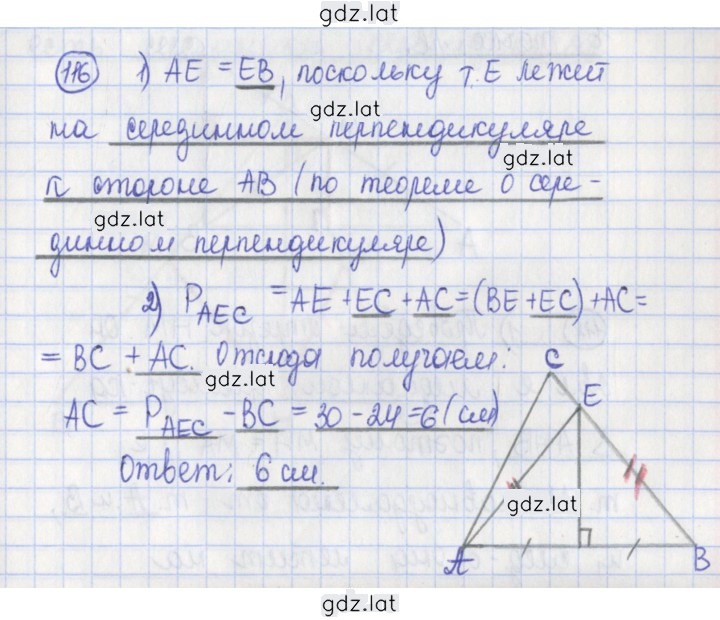 gdz.lat
116 1) AE = EB, поскольку т. E лежит
gdz.lat
на серединном перпендикуляре
gdz.lat
к стороне AB (по теореме о сере-
gdz.lat
динном перпендикуляре)
2) P_AEC = AE + EC + AC = (BE + EC) + AC =
= BC + AC. Отсюда получаем:
gdz.lat
AC = P_AEC - BC = 30 - 24 = 6 (см)
Ответ: 6 см.
C
E
gdz.lat
A B
gdz.lat